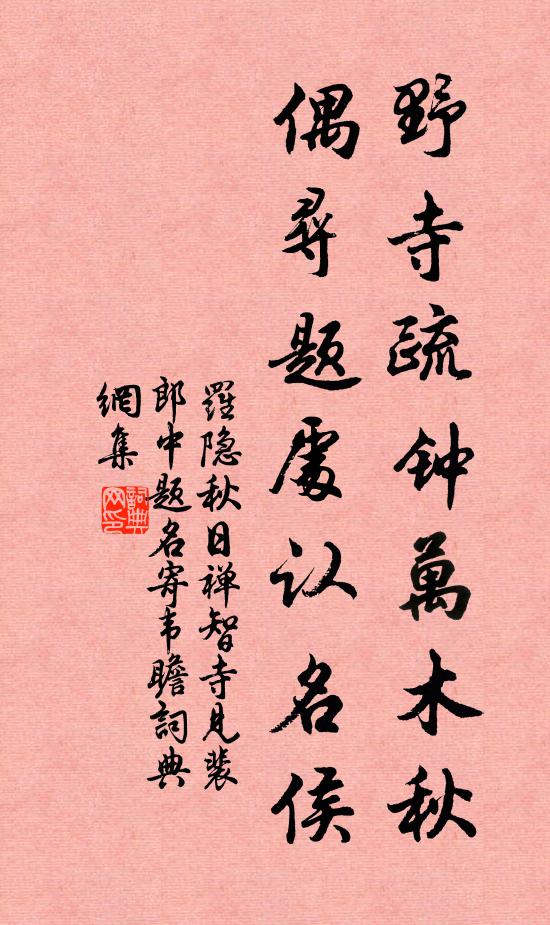 野寺疏钟萬木秋
偶尋题處认名侯
羅隐秋日禅智寺見裴
郎中题名寄韦瞻詞典
網集
詞典
网印